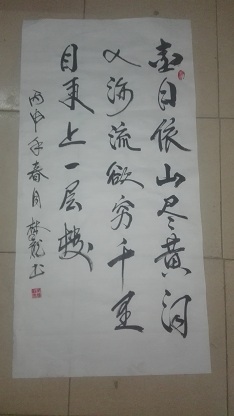 白日依山尽黄河
入海流欲穷千里
目更上一层楼
丙申年春月龙书